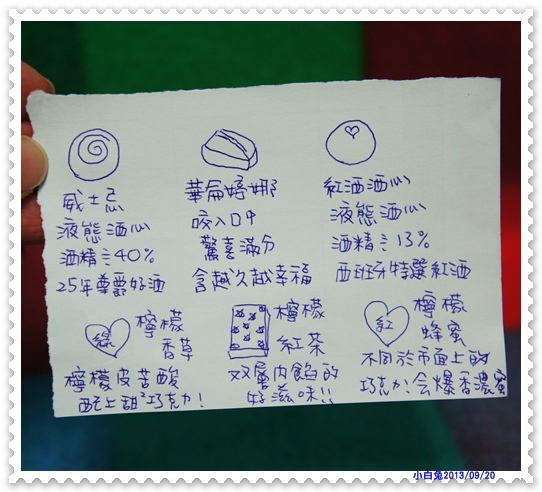 威士忌
液態酒心
酒精:40%
25年尊爵好酒
華侖婷娜
咬入口中
驚喜滿分
含越久越幸福
紅酒酒心
液態酒心
酒精:13%
西班牙特選紅酒
綠
檸檬
香草
檸檬皮苦酸
配上甜²巧克力!
檸檬
紅茶
双層內餡的
好滋味!!
紅
檸檬
蜂蜜
不同於市面上的
巧克力:会爆香濃蜜
小白兔2013/09/20